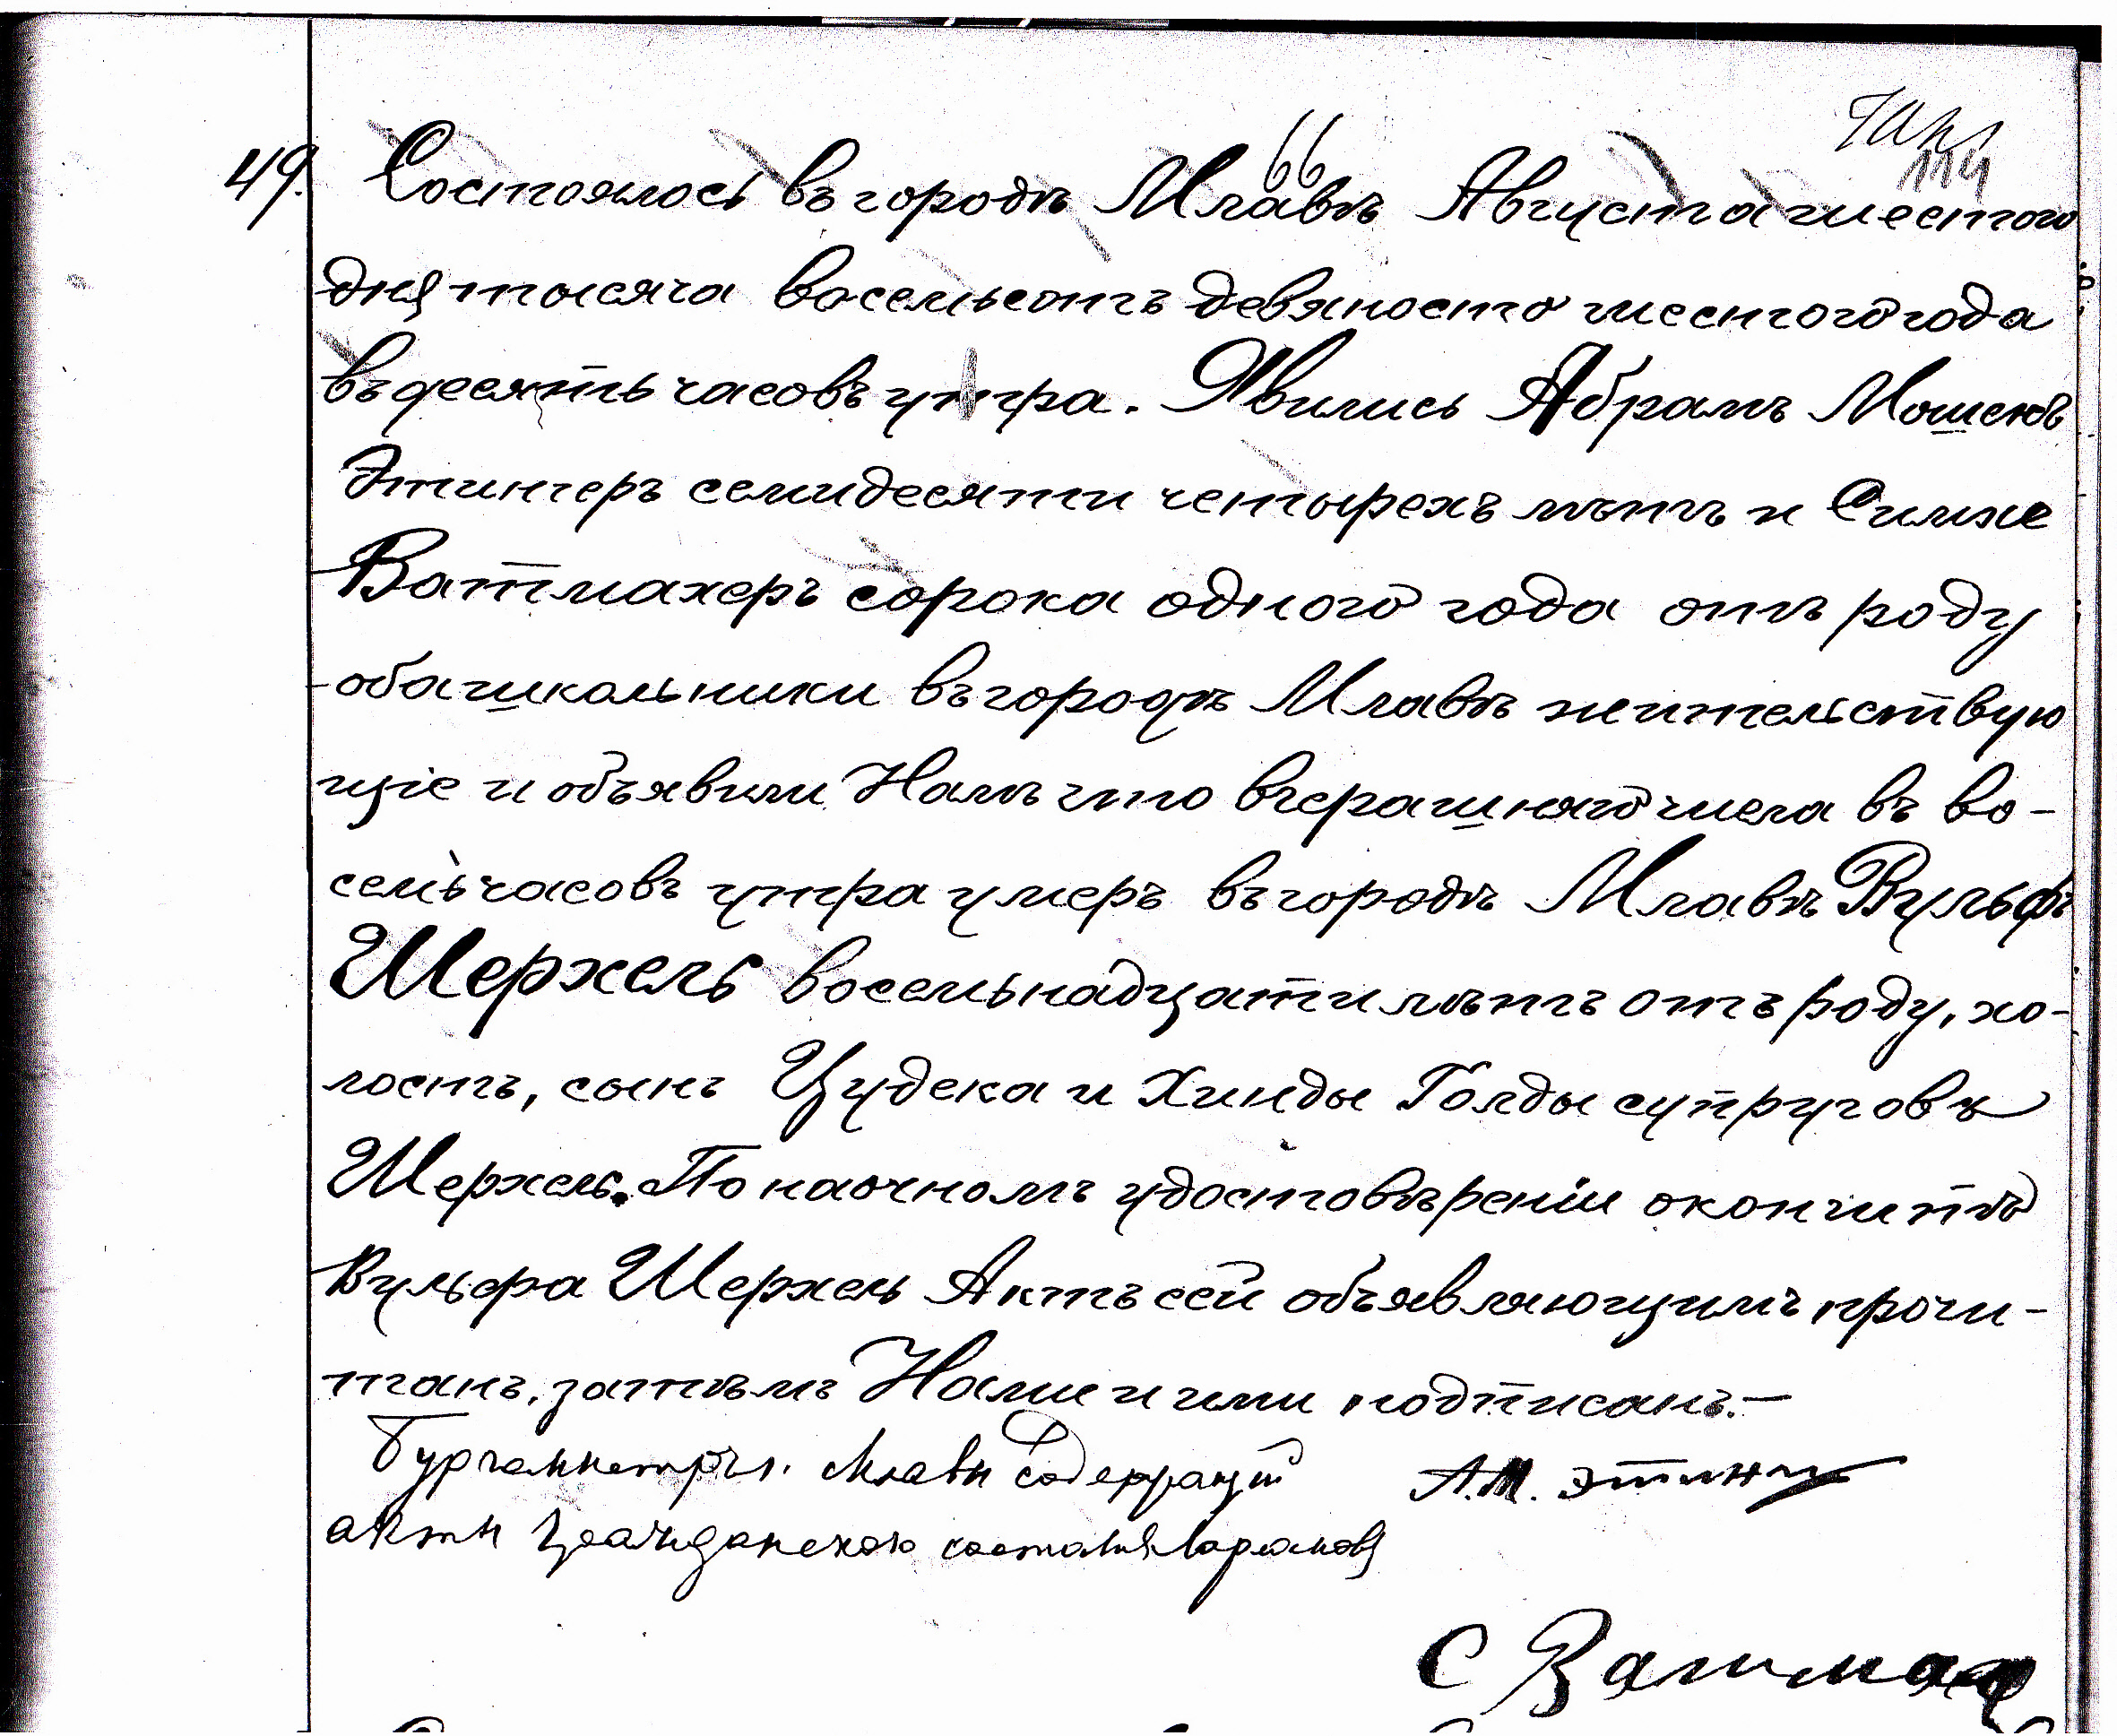 114
66
49. Состоялось въ городѣ Млавѣ Августа шестого
дня тысяча восемьсотъ девяносто шестого года
въ десять часовъ утра. Явились Абрамъ Мошекъ
Этингеръ семидесяти четырехъ лѣтъ и Симхе
Ватмахеръ сорока одного года отъ роду
оба школьники въ городѣ Млавѣ жительствую
щіе и объявили Намъ что вчерашняго числа въ во-
семь часовъ утра умеръ въ городѣ Млавѣ Вульфъ
Шерхель восемьнадцати лѣтъ отъ роду, хо-
лостъ, сынъ Цудека и Хинды Голды супруговъ
Шерхель. По наочномъ удостовѣреніи о кончинѣ
Вульфа Шерхель Актъ сей объявляющимъ прочи-
танъ, затѣмъ Нами и ими подписанъ.—
Бургомистръ г. Млавы Содержащій А. М. Этинг
акты Гражданскаго состоянія
С Ватмах